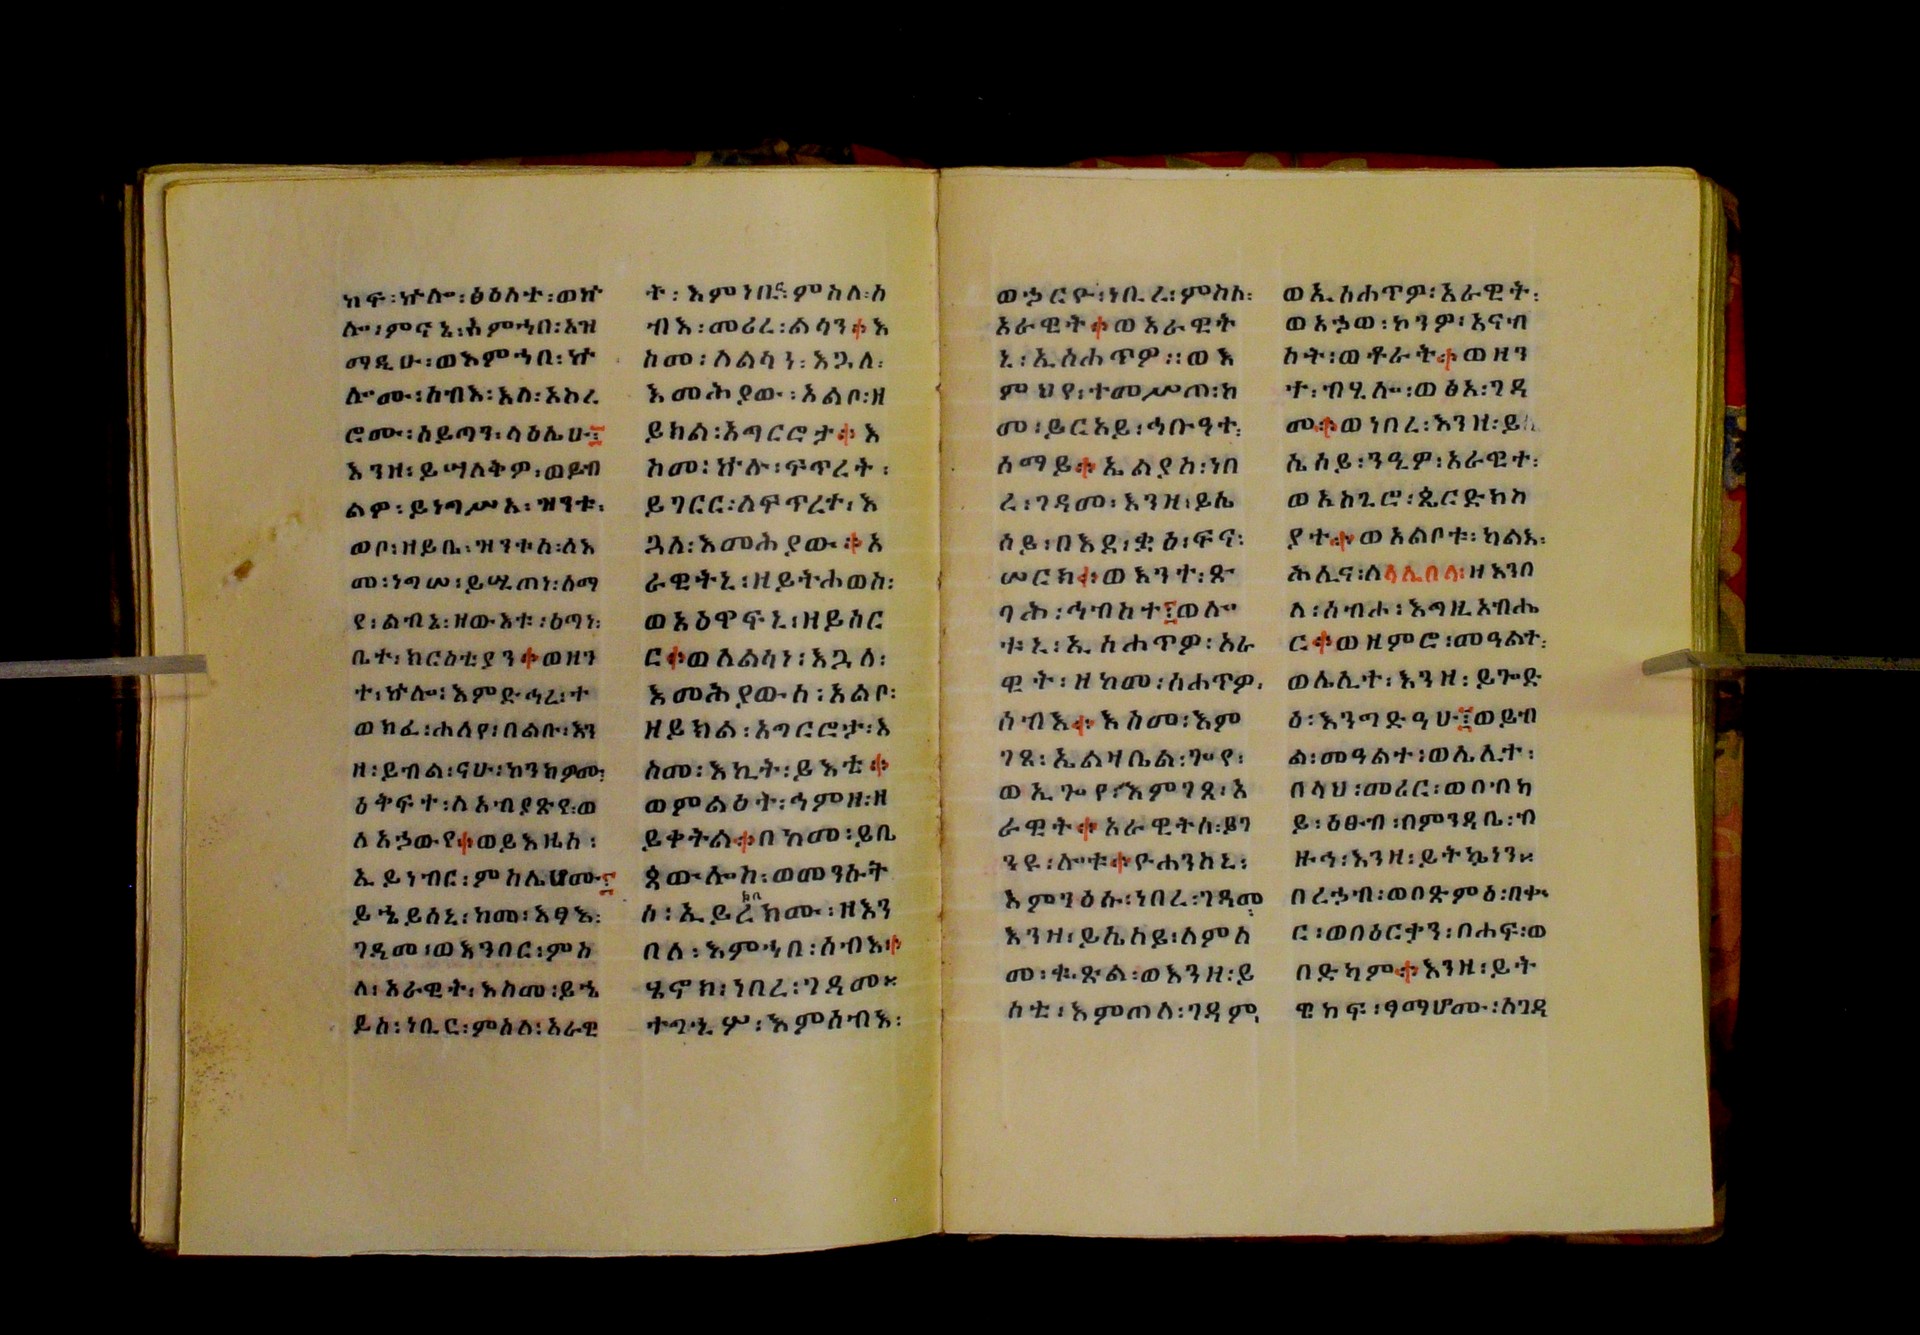 ከፍ፡ኵሎ፡ፅዕለተ፡ወኵ
ሎ፡ምናኔ፡እምኀበ፡አዝ
ማዲሁ፡ወእምኀበ፡ኵ
ሎሙ፡ሰብእ፡እለ፡አከረ
ሮሙ፡ሰይጣን፡ላዕሌሁ፤
እንዘ፡ይሣለቅዎ፡ወይብ
ልዎ፡ይነግሥኑ፡ዝንቱ፡
ወቦ፡ዘይቤ፡ዝንቱሰ፡ለእ
መ፡ነግሠ፡ይሤጠነ፡ዕማ
ዩ፡ልብኔ፡ዘውእቱ፡ዕጣነ፡
ቤተ፡ክርስቲያን።ወዘን
ተ፡ኵሎ፡እምድኅረ፡ተ
ወክፈ፡ሐለየ፡በልቡ፡እን
ዘ፡ይብል፡ናሁ፡ኮንክዎሙ፡
ዕቅፍተ፡ለአብያጽየ፡ወ
ለአኃውየ።ወይእዜሰ፡
ኢይነብር፡ምስሌሆሙ፤
ይኄይሰኒ፡ከመ፡እፃእ፡
ገዳመ፡ወእንበር፡ምስ
ለ፡አራዊት፡እስመ፡ይኄ
ይስ፡ነቢር፡ምስለ፡አራዊ
ት፡እምነበረ፡ምስለ፡ሰ
ብእ፡መሪረ፡ልሳን።እ
ስመ፡ለልሳን፡እጓለ፡
እመሕያው፡አልቦ፡ዘ
ይክል፡አግርሮታ።እ
ስመ፡ኵሉ፡ፍጥረት፡
ይገርር፡ለፍጥረተ፡እ
ጓለ፡እመሕያው።አ
ራዊትኒ፡ዘይትሐወስ፡
ወአዕዋፍኒ፡ዘይሰር
ር።ወለልሳነ፡እጓለ፡
እመሕያውስ፡አልቦ፡
ዘይክል፡አግርሮታ፡እ
ስመ፡እኪት፡ይእቲ።
ወምልዕት፡ኅምዘ፡ዘ
ይቀትል።በከመ፡ይቤ
ጳውሎስ፡ወመንኑት
ሰ፡ኢይረክቦሙ፡ዘእን
በለ፡እምኀበ፡ሰብእ።
ሄኖክ፡ነበረ፡ገዳመ፡
ተግኂሦ፡እምሰብእ፡
ወኃርዮ፡ነቢረ፡ምስለ፡
አራዊት።ወአራዊት
ኒ፡ኢስሐጥዎ፡፡ወእ
ምህየ፡ተመሥጠ፡ከ
መ፡ይርአይ፡ኅቡዓተ፡
ሰማይ።ኤልያስ፡ነበ
ረ፡ገዳመ፡እንዘ፡ይሴ
ሰይ፡በእደ፡ቋዕ፡ፍና፡
ሠርክ።ወእንተ፡ጽ
ባሕ፡ኅብስተ፤ወሎ
ቱኒ፡ኢስሐጥዎ፡አራ
ዊት፡ዘከመ፡ስሐጥዎ፡
ሰብእ።እስመ፡እም
ገጸ፡ኤልዛቤል፡ጐየ፡
ወኢጐየ፡እምገጸ፡አ
ራዊት።አራዊትሰ፡ይገ
ንዩ፡ሎቱ።ዮሐንስኒ፡
እምንዕሱ፡ነበረ፡ገዳመ፡
እንዘ፡ይሴሰይ፡ሰምሰ
መ፡ቈጽል፡ወእንዘ፡ይ
ሰቲ፡እምጠለ፡ገዳም፡
ወኢስሐጥዎ፡አራዊት፡
ወአኃው፡ኮንዎ፡አናብ
ስት፡ወቶራት።ወዘን
ተ፡ብሂሎ፡ወፅአ፡ገዳ
መ።ወነበረ፡እንዘ፡ይ
ሴሰይ፡ንዒዎ፡አራዊተ፡
ወአስጊሮ፡ጴርድከስ
ያተ።ወአልቦቱ፡ካልእ፡
ሕሊና፡ለላሊበላ፡ዘእንበ
ለ፡ሰብሖ፡እግዚአብሔ
ር።ወዘምሮ፡መዓልተ፡
ወሌሊተ፡እንዘ፡ይጐድ
ዕ፡እንግድዓሁ፤ወይብ
ል፡መዓልተ፡ወሌሊተ፡
በላህ፡መሪር፡ወበብካ
ይ፡ዕፁብ፡በምንዳቤ፡ብ
ዙኅ፡እንዘ፡ይትኴነን፡
በረኃብ፡ወበጽምዕ፡በቍ
ር፡ወበዕርቃን፡በሐፍ፡ወ
በድካም።እንዘ፡ይት
ዊከፍ፡ፃማሆሙ፡ለገዳ